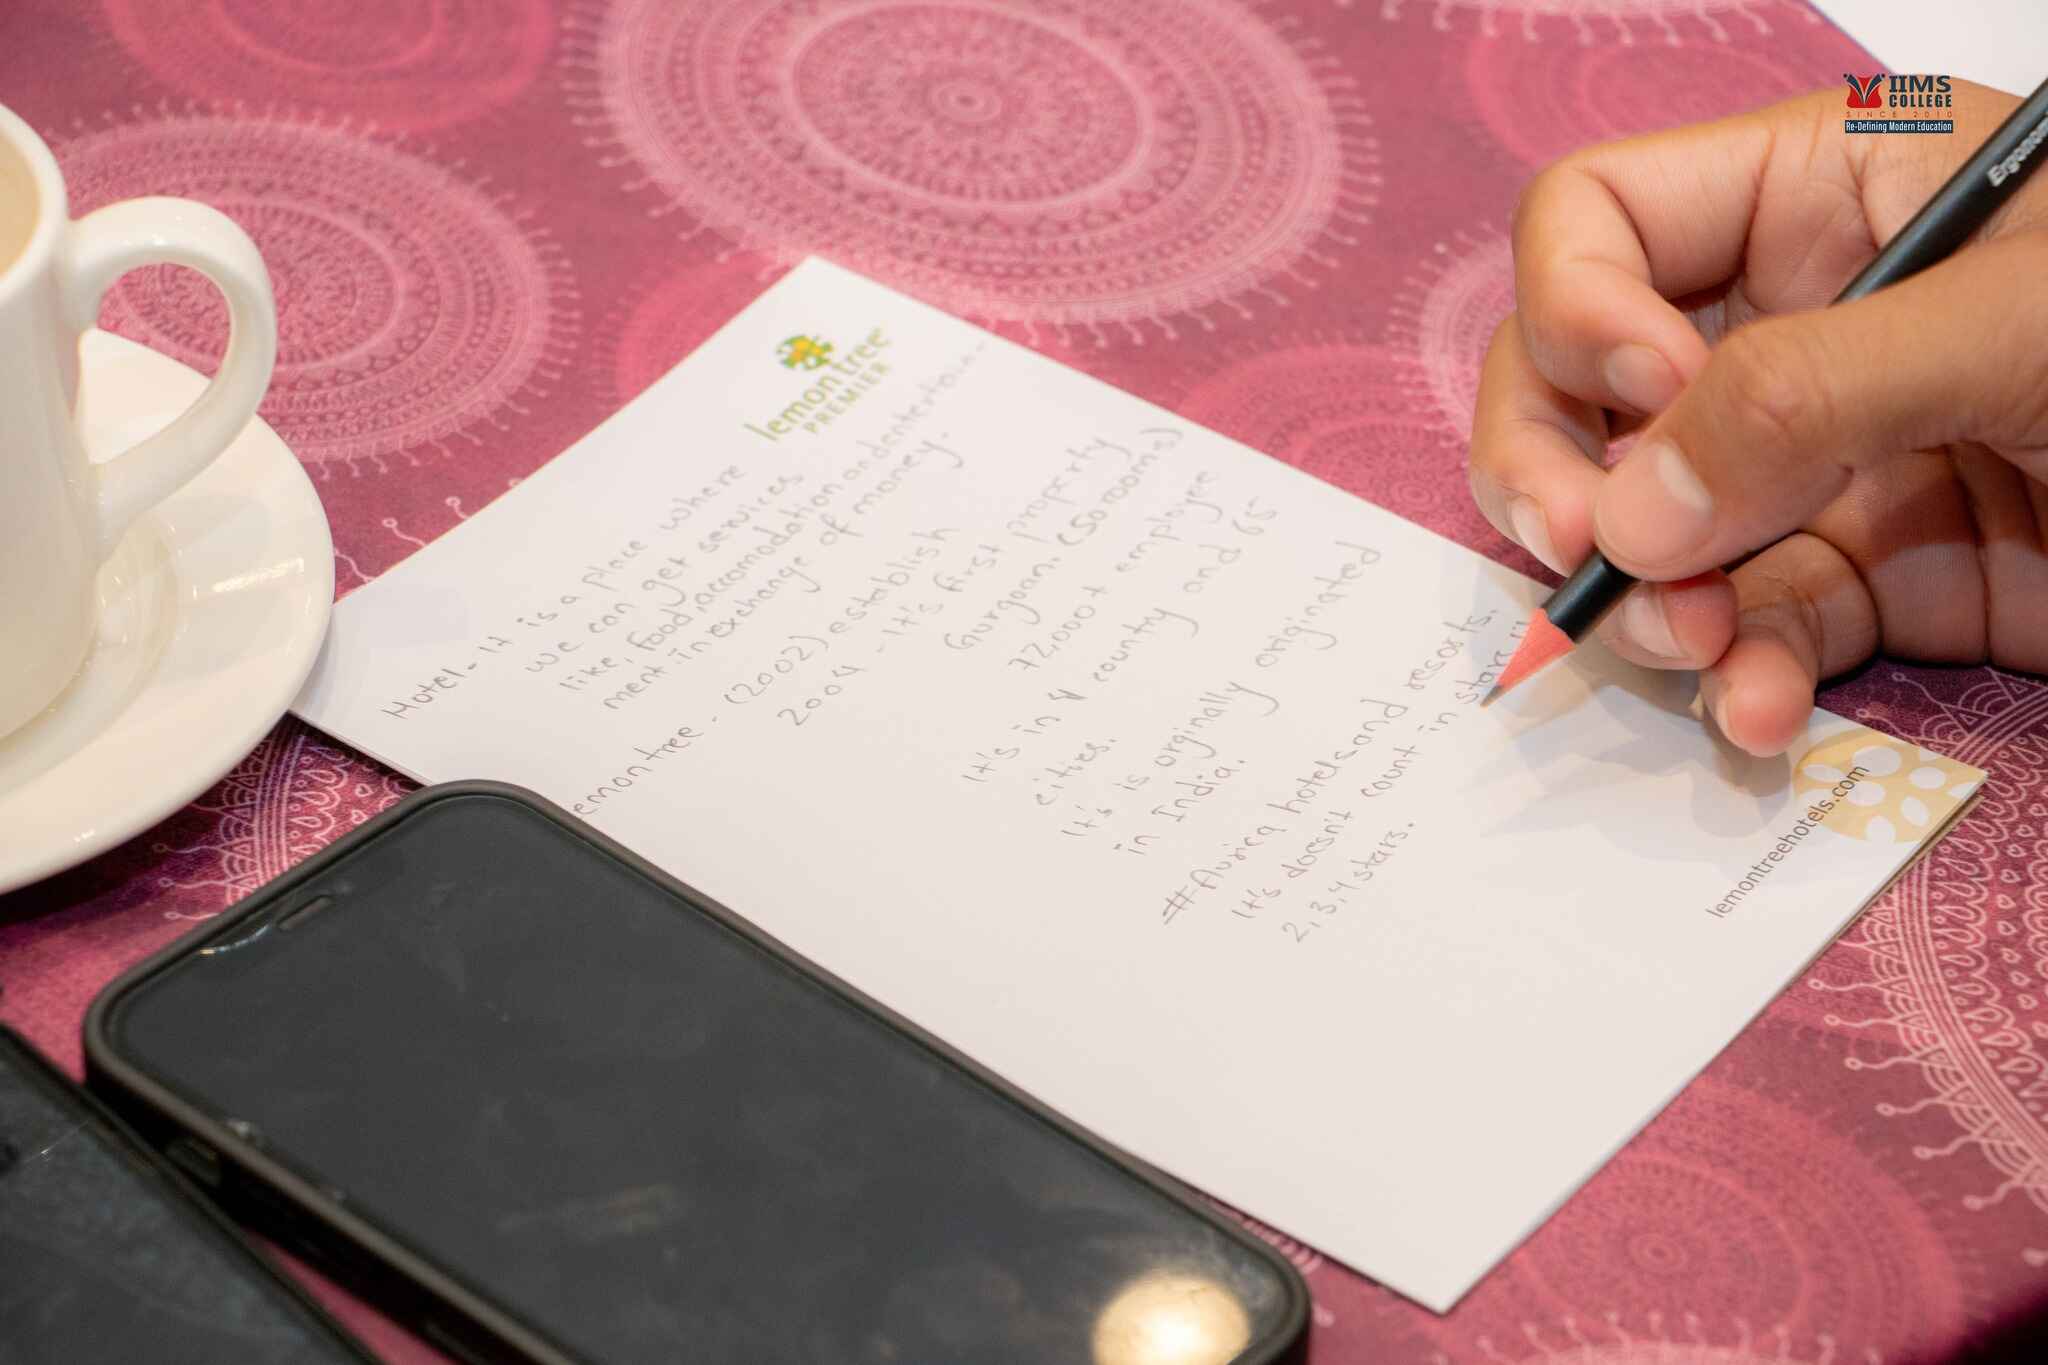 IIMS
COLLEGE
SINCE 2010
Re-Defining Modern Education
Ergonom
lemon tree
PREMIER
Hotel - It is a place where
we can get services
like, food, accomodation and entertain-
ment in exchange of money.
emon tree - (2002) establish
2004 - It's first property
Gurgoan. (50 rooms)
72,000+ employee
It's in 4 country and 65
cities.
It's is orginally originated
in India.
# Aurica hotels and resorts.
It's doesn't count in stars li
2, 3, 4 stars.
lemontreehotels.com